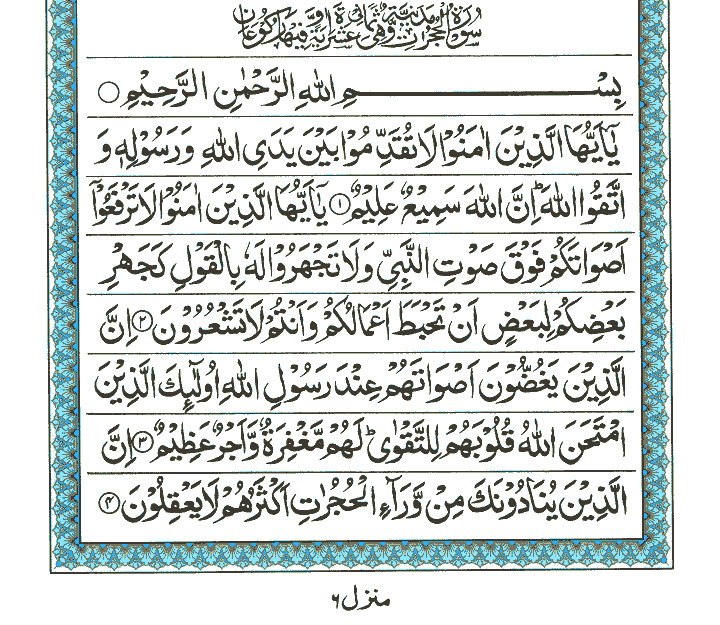 سُوْرَةُ الْحُجُرٰتِ مَدَنِيَّةٌ وَّهِىَ ثَمَانِىْ عَشْرَةَ اٰيَةً وَّفِيْهَا رُكُوْعَانِ
بِسْمِ اللهِ الرَّحْمٰنِ الرَّحِيْمِ ○
يٰۤاَيُّهَا الَّذِيْنَ اٰمَنُوْا لَا تُقَدِّمُوْا بَيْنَ يَدَىِ اللهِ وَ رَسُوْلِهٖ وَ
اتَّقُوا اللهَ ؕ اِنَّ اللهَ سَمِيْعٌ عَلِيْمٌ ۝۱ يٰۤاَيُّهَا الَّذِيْنَ اٰمَنُوْا لَا تَرْفَعُوْۤا
اَصْوَاتَكُمْ فَوْقَ صَوْتِ النَّبِىِّ وَ لَا تَجْهَرُوْا لَهٗ بِالْقَوْلِ كَجَهْرِ
بَعْضِكُمْ لِبَعْضٍ اَنْ تَحْبَطَ اَعْمَالُكُمْ وَ اَنْتُمْ لَا تَشْعُرُوْنَ ۝۲ اِنَّ
الَّذِيْنَ يَغُضُّوْنَ اَصْوَاتَهُمْ عِنْدَ رَسُوْلِ اللهِ اُولٰٓئِكَ الَّذِيْنَ
امْتَحَنَ اللهُ قُلُوْبَهُمْ لِلتَّقْوٰى ؕ لَهُمْ مَّغْفِرَةٌ وَّ اَجْرٌ عَظِيْمٌ ۝۳ اِنَّ
الَّذِيْنَ يُنَادُوْنَكَ مِنْ وَّرَآءِ الْحُجُرٰتِ اَكْثَرُهُمْ لَا يَعْقِلُوْنَ ۝۴
منزل ۶